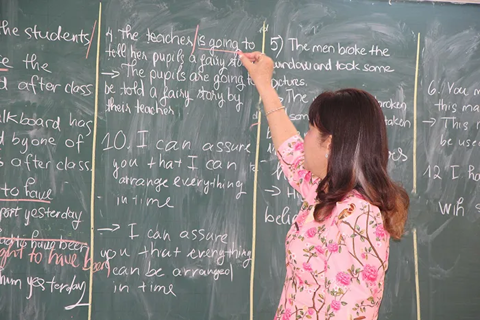 the students
the
d after class
lkboard has
d by one of
s after class.
to have
port yesterday
to have been
ght to have been
hum yesterday
4. The teacher is going to
tell her pupils a fairy
→ The pupils are going to
be told a fairy story by
their teacher
10. I can assure
you that I can
arrange everything
in time
→ I can assure
you that everything
can be arranged
in time
5) The men broke the
window and took some
pictures.
The
broken
taken
→ H
belie
6. You m
this ma
→ This
be use
12 I ha
wh s